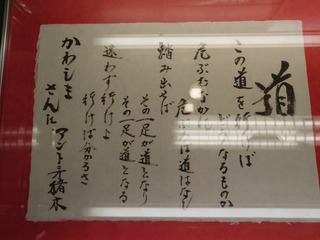 道
この道を行けば
どうなるものか
危ぶむなかれ
危ぶめば道はなし
踏み出せば
その一足が道となり
その一足が道となる
迷わず行けよ
行けば分かるさ
アントニオ猪木
かわしま
さんに